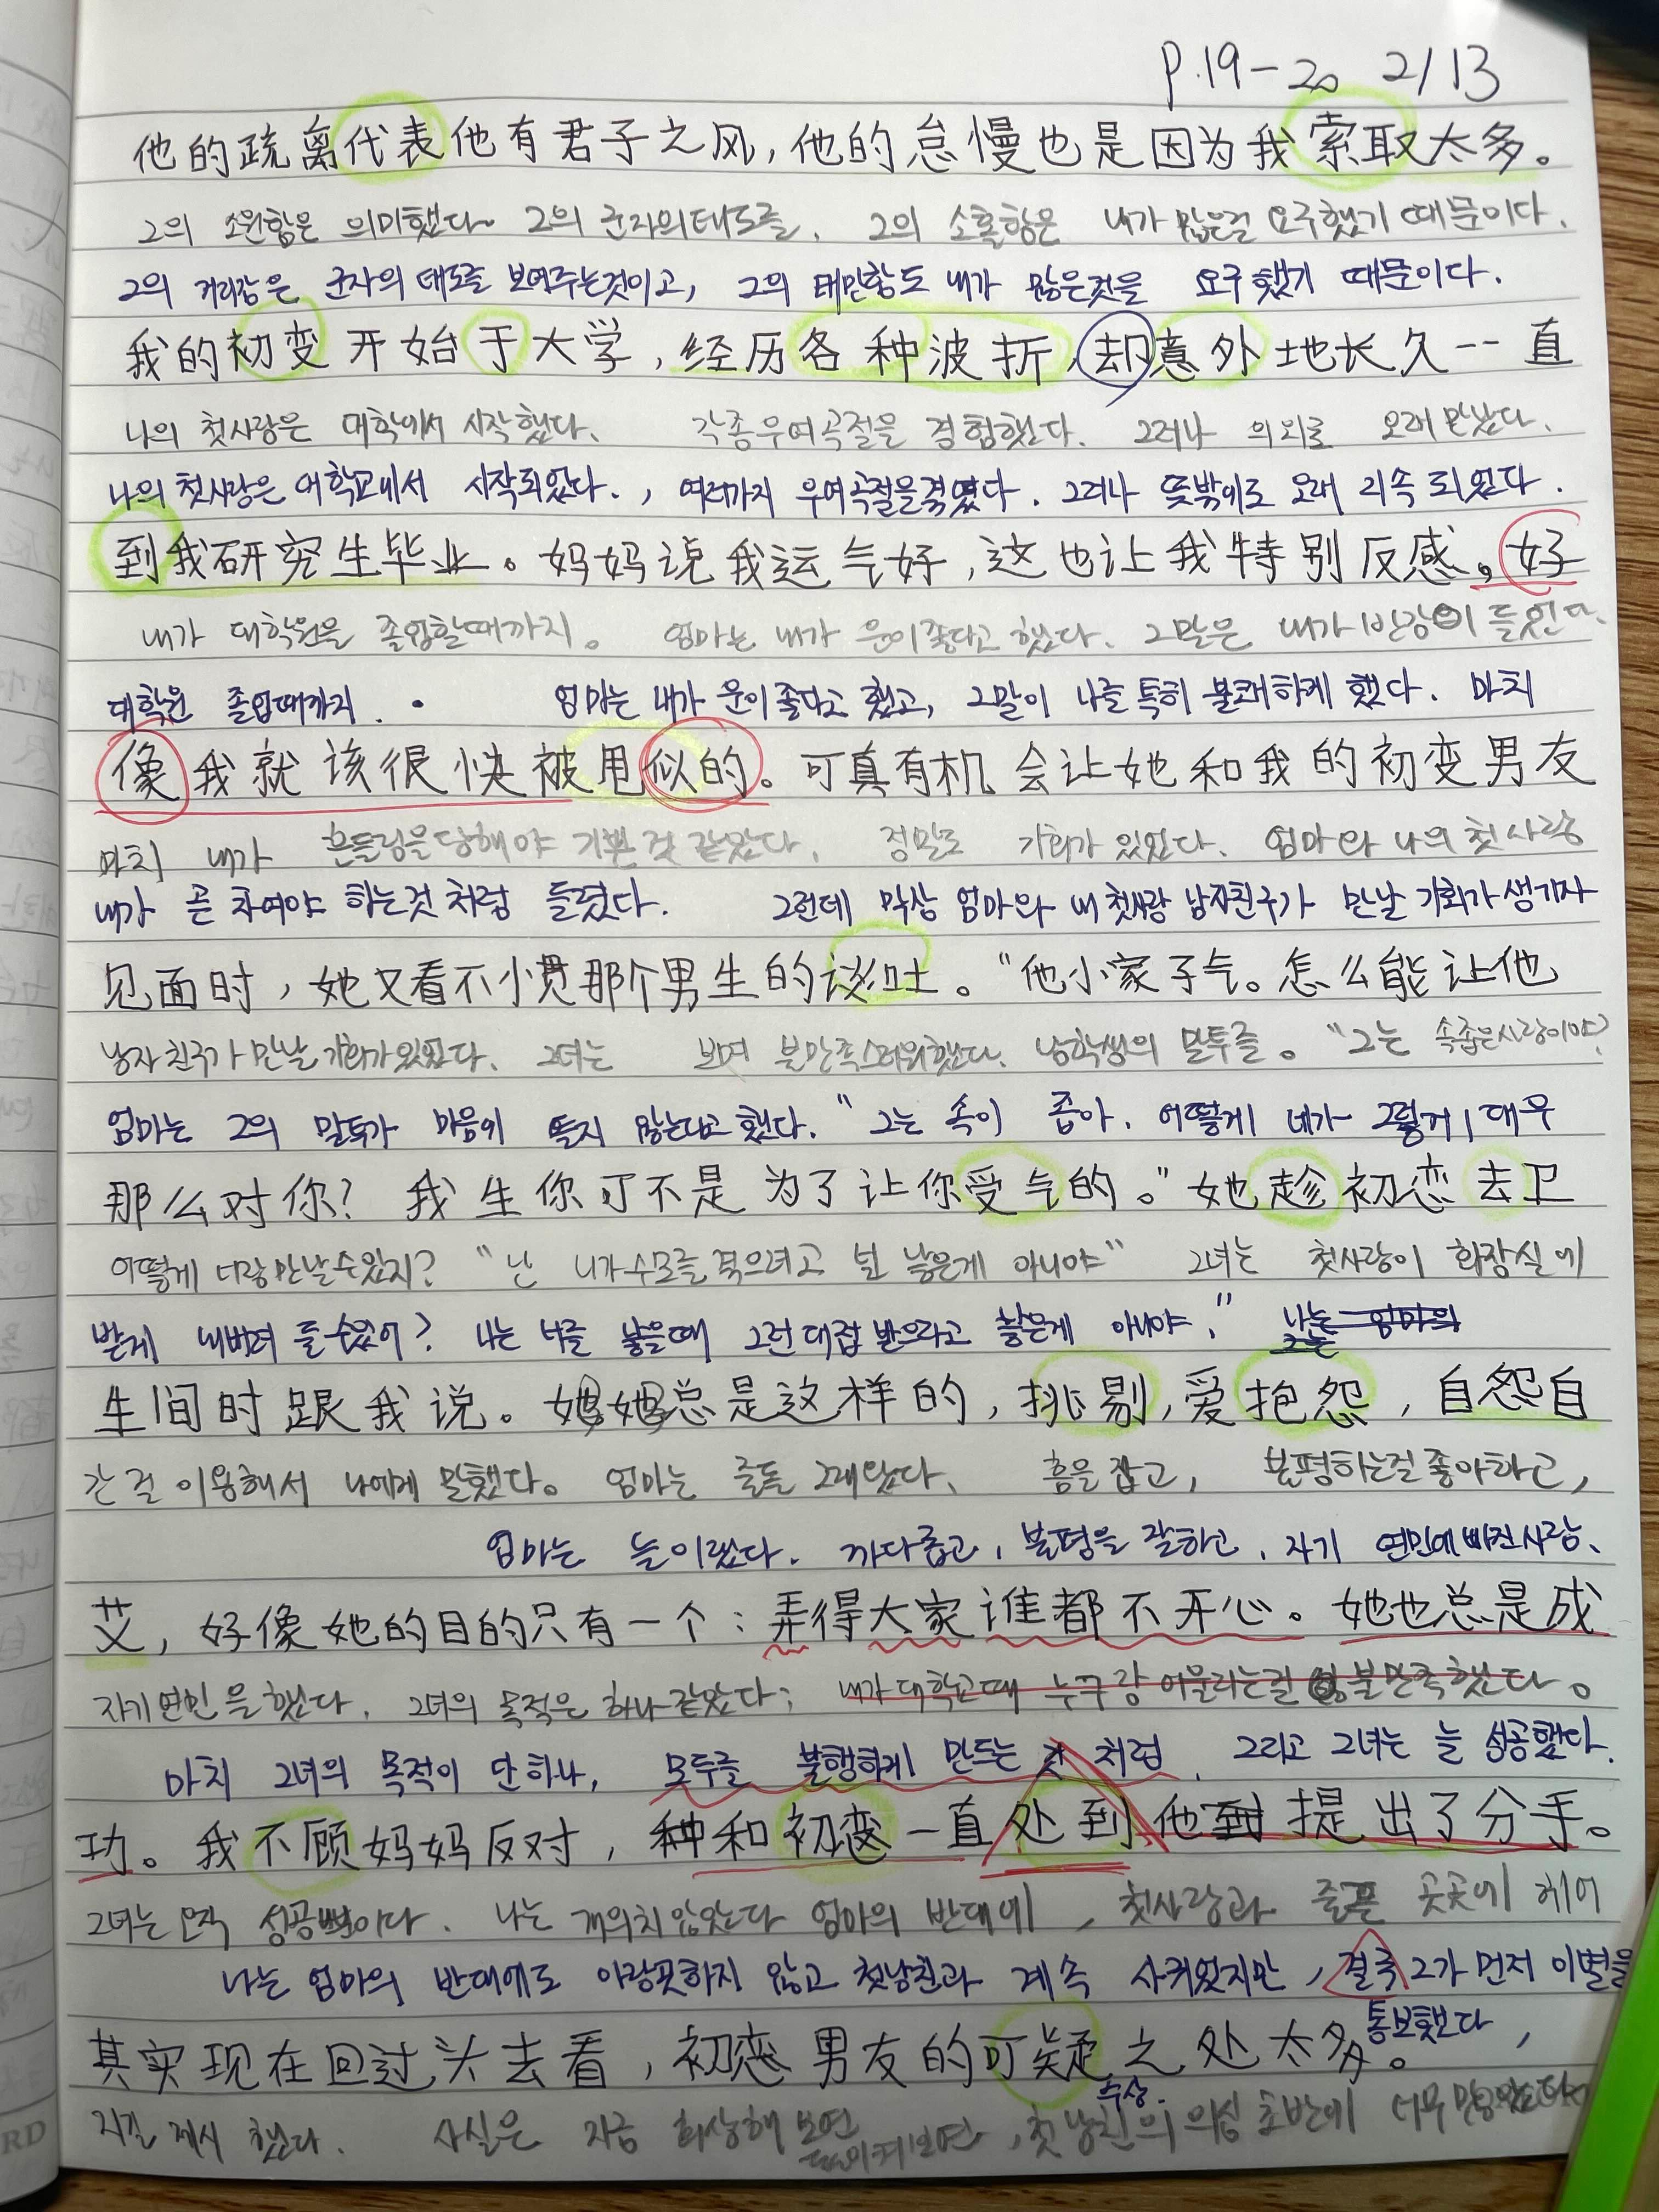 P.19-20 2/13
他的疏离代表他有君子之风，他的怠慢也是因为我索取太多。
그의 소원함은 의미했다 그의 군자의태도를, 그의 소홀함은 내가 많은걸 요구했기 때문이다.
그의 거리감은 군자의 태도를 보여주는것이고, 그의 태만함도 내가 많은것을 요구했기 때문이다.
我的初变开始于大学，经历各种波折，却意外地长久--直
나의 첫사랑은 대학에서 시작했다. 각종우여곡절을 경험했다. 그러나 의외로 오래 만났다.
나의 첫사랑은 대학교에서 시작되었다., 여러가지 우여곡절을겪였다. 그러나 뜻밖이로 오래 지속 되었다.
到我研究生毕业。妈妈说我运气好，这也让我特别反感。好
내가 대학원을 졸업할때까지。 엄마는 내가 운이좋다고 했다. 그말은 내가 반감이 들었다.
대학원 졸업때까지. 엄마는 내가 운이좋다고 했고, 그말이 나를 특히 불쾌하게 했다. 마치
像我就该很快被甩似的。可真有机会让她和我的初变男友
마치 내가 흔들림을당해야 기쁜 것 같았다. 정말로 기회가 있었다. 엄마와 나의 첫사랑
내가 곧 차여야 하는것처럼 들렸다. 그런데 막상 엄마와 내 첫사랑 남자친구가 만날 기회가생기자
见面时，她又看不惯那个男生的谈吐。“他小家子气。怎么能让他
남자친구가 만날 기회가있었다. 그녀는 보며 불만족스러워했다. 남학생의 말투를。"그는 속좁은사람이야?
엄마는 그의 말투가 마음에 들지 않는다고했다. "그는 속이 좁아. 어떻게 네가 그렇게 대우
那么对你？我生你可不是为了让你受气的。”她趁初恋去卫
어떻게 너랑만날수있지? "난 니가수모를겪으려고 널 낳은게 아니야" 그녀는 첫사랑이 화장실에
받게 내버려 둘수있어? 나는 너를 낳을때 그런대접받으라고 낳은게 아니야." 나는 엄마의
生间时跟我说。她她总是这样的，挑剔，爱抱怨，自怨自
간걸 이용해서 나에게 말했다。엄마는 줄돋 그래왔다. 흠을잡고, 불평하는걸좋아하고,
엄마는 늘이랬다. 까다롭고, 불평을 잘하고, 자기 연민에빠진사람.
艾，好像她的目的只有一个：弄得大家谁都不开心。她也总是成
자기연민을했다. 그녀의 목적은 하나같았다; 내가대학교때 누구랑 어울리는걸 불만족했다。
마치 그녀의 목적이 단하나, 모두를 불행하게 만드는 것 처럼. 그리고 그녀는 늘 성공했다.
功。我不顾妈妈反对，种和初变一直处到他到提出了分手。
그녀는 오직 성공뿐이다. 나는 개의치않았다 엄마의 반대에, 첫사랑과 줄곧 곳곳에 헤어
나는 엄마의 반대에도 아랑곳하지 않고 첫남친과 계속 사귀었지만, 결국 그가 먼저 이별을
통보했다
其实现在回过头去看，初恋男友的可疑之处太多。
수상.
지길 제시 했다. 사실은 지금 회상해 보면, 첫남친의 의심 초반에 너무많았다